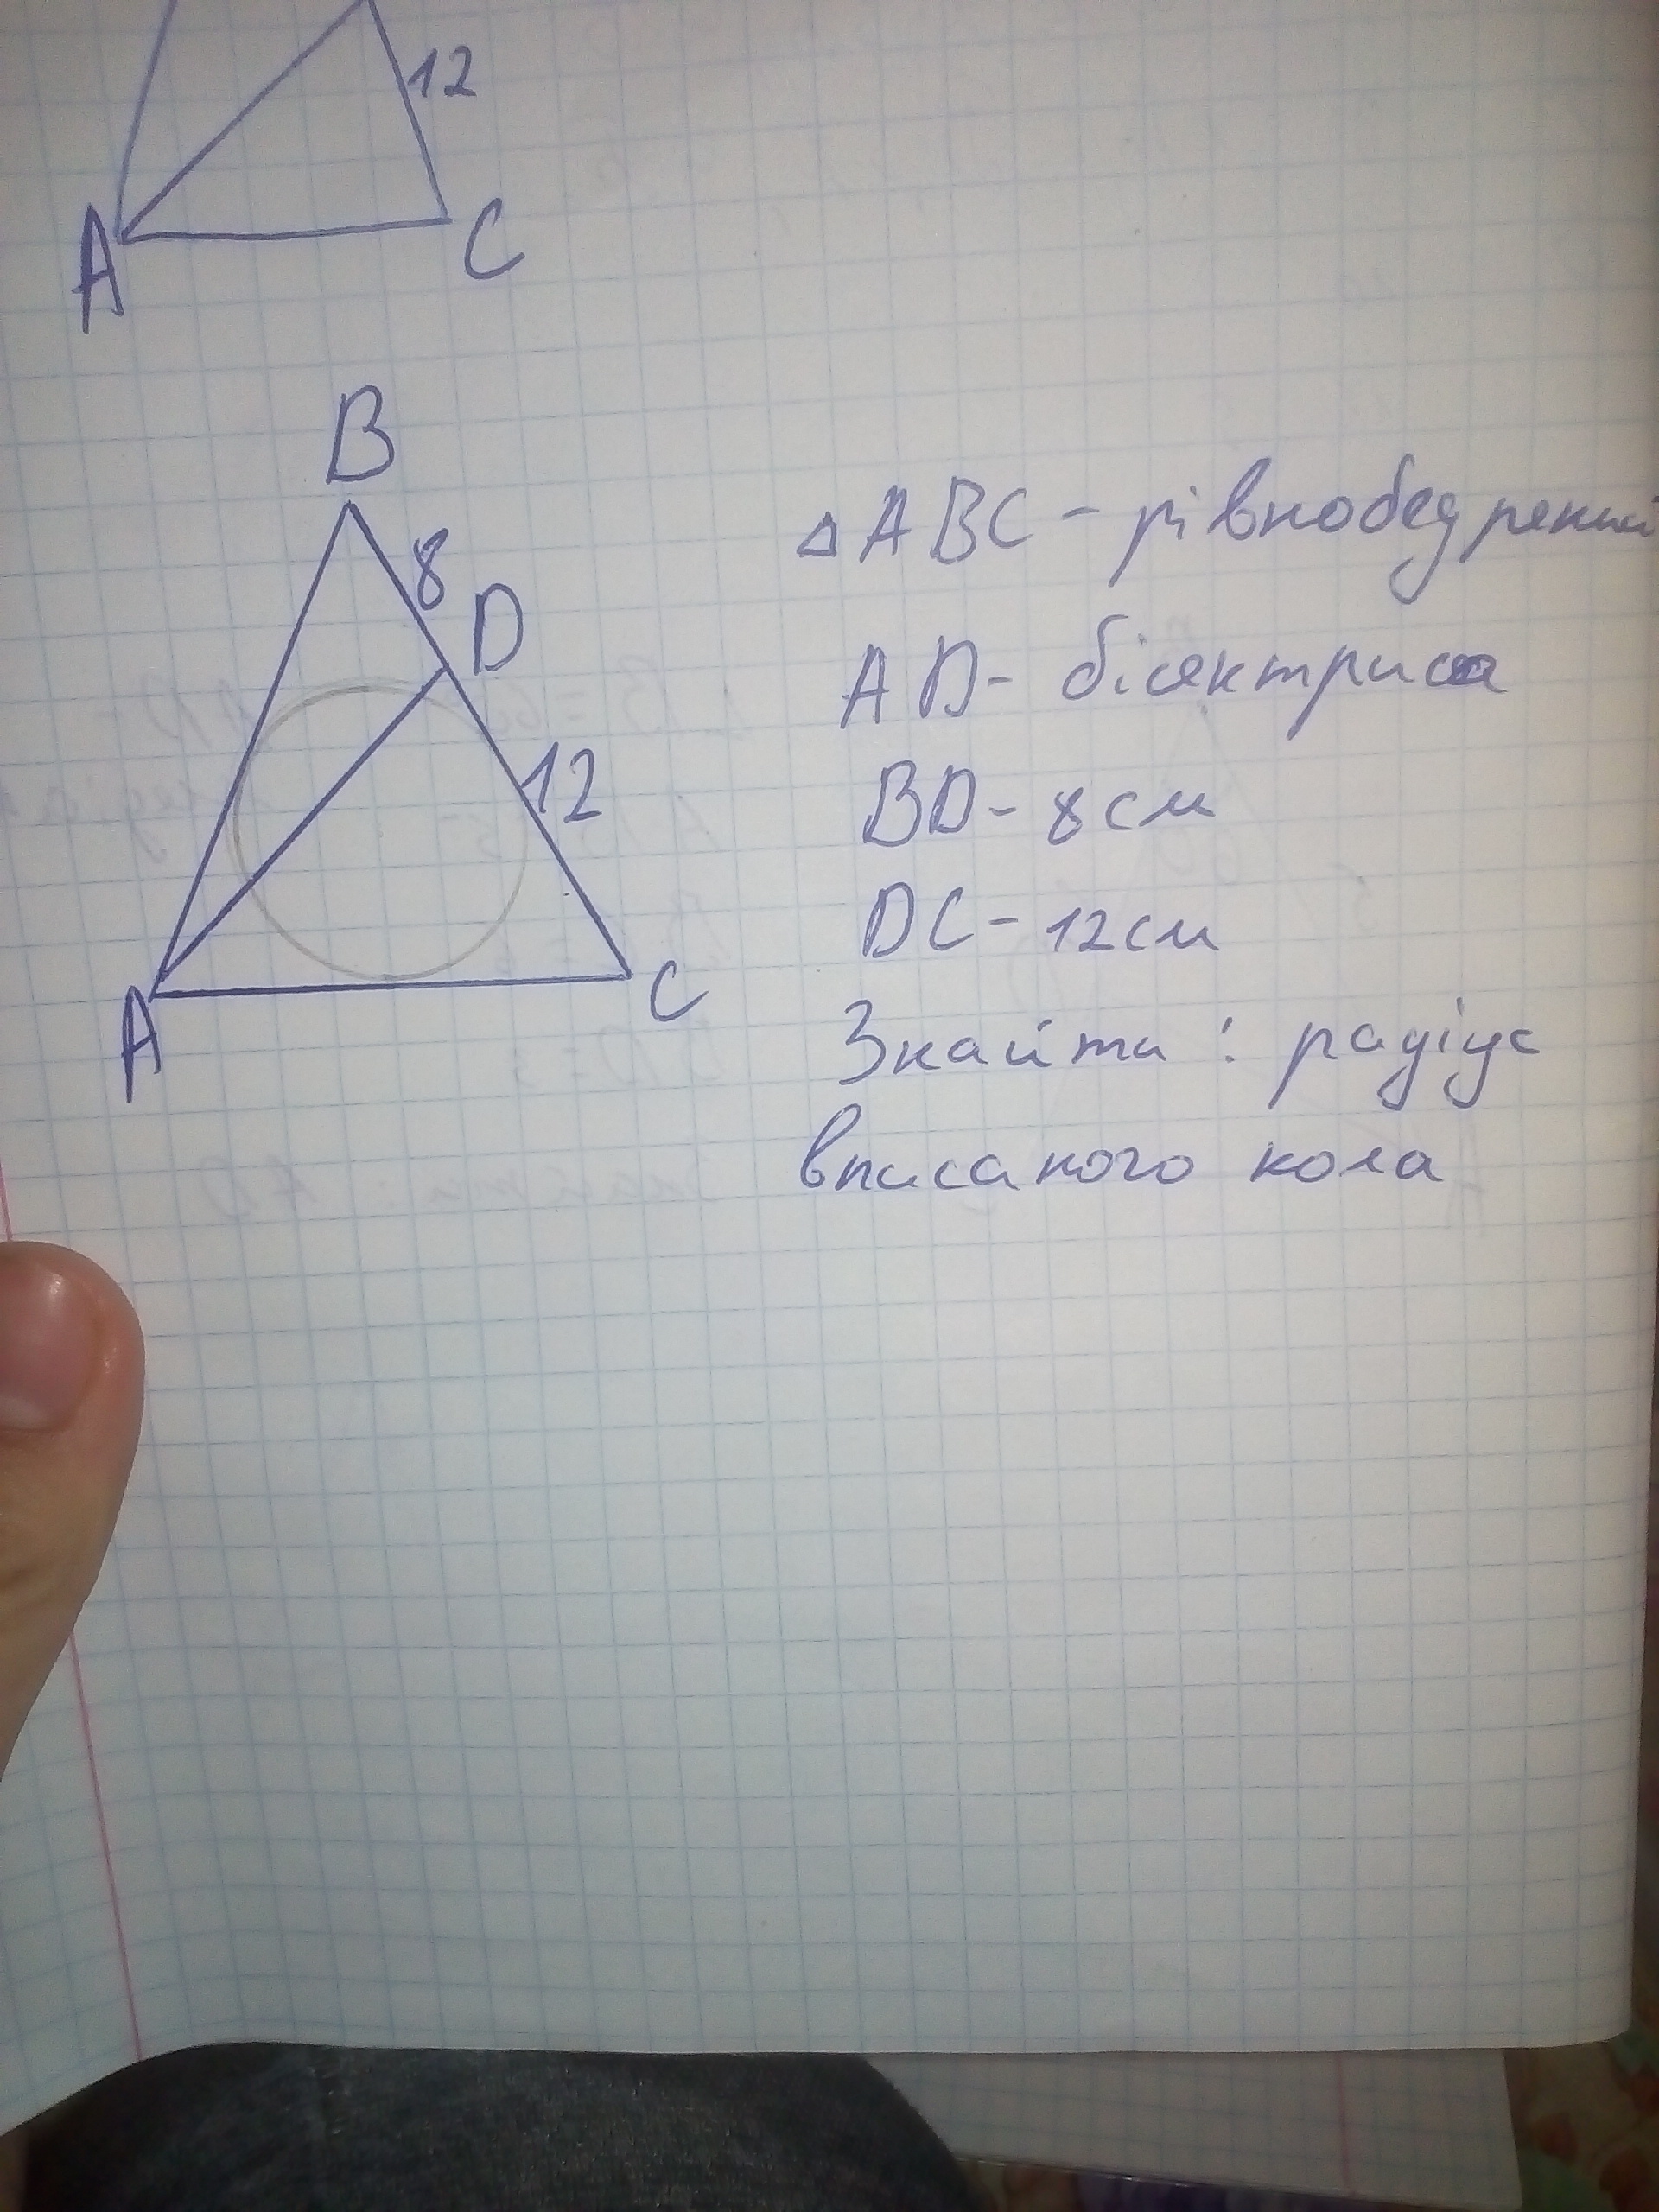 12
A
C
B
8
D
12
A
C
△ABC - рівнобедрений
AD - бісектриса
BD - 8см
DC - 12см
Знайти: радіус
вписаного кола